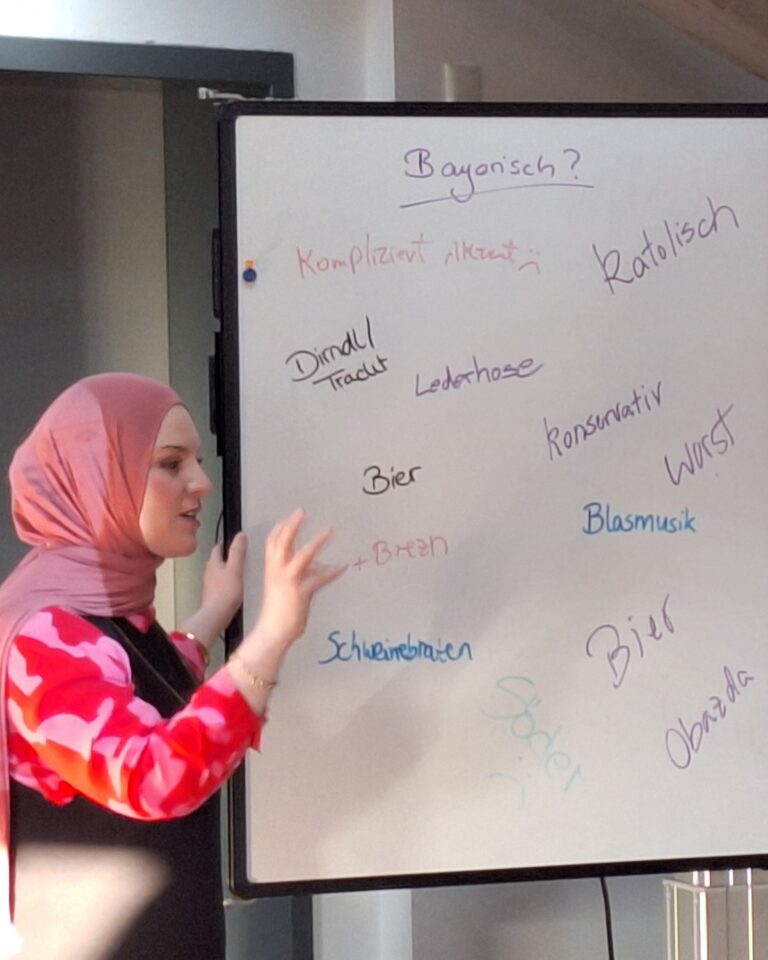 Bayerisch?
Kompliziert Akzent :(
Katolisch
Dirndl/
Tracht
Lederhose
Konservativ
Wurst
Bier
Blasmusik
+ Brezn
Schweinebraten
Bier
Söder
:(
Obazda